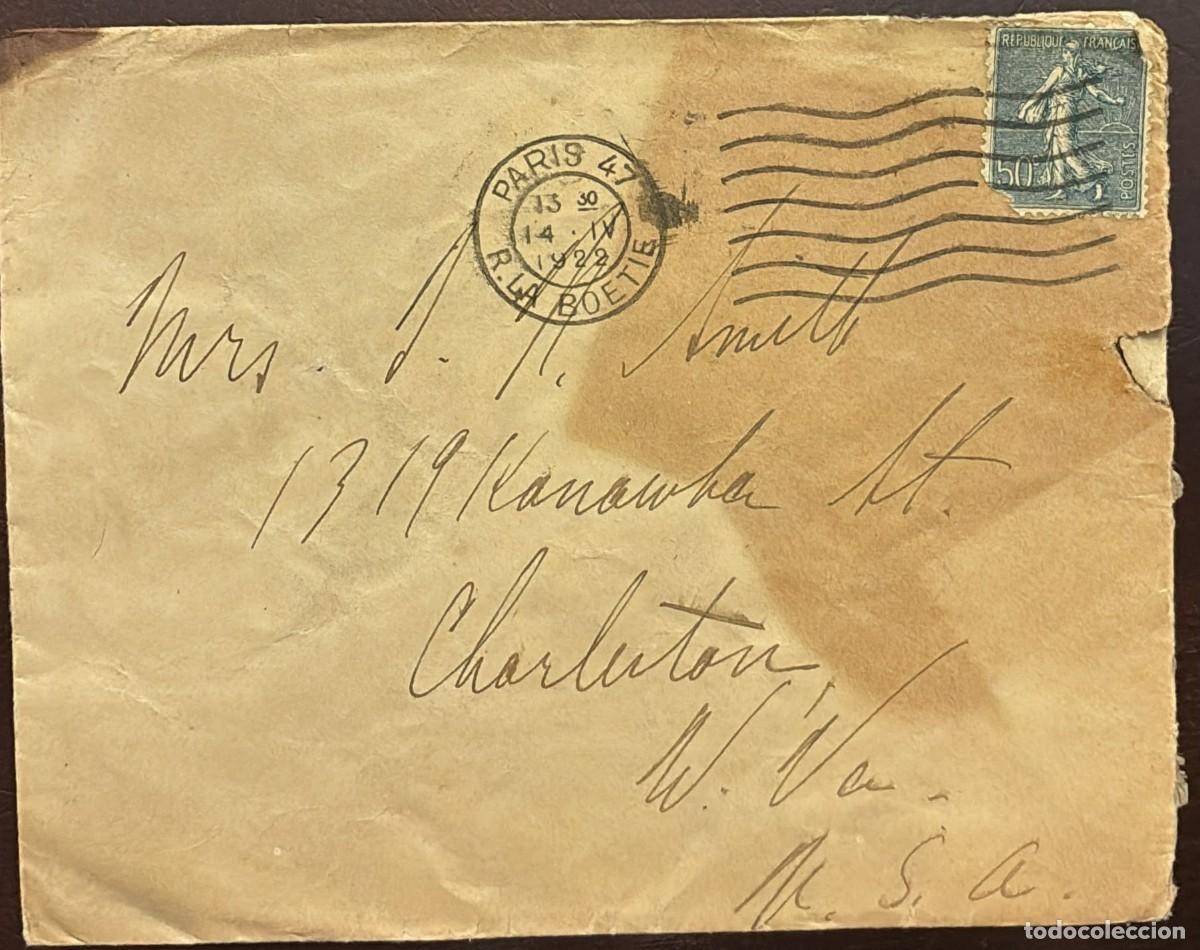 RÉPUBLIQUE FRANÇAISE
50
POSTES
PARIS 47
13 30
14 · IV
1922
R. LA BOETIE
Mrs. S. H. Smith
1319 Kanawha St.
Charleston,
W. Va.
U. S. A.
todocoleccion